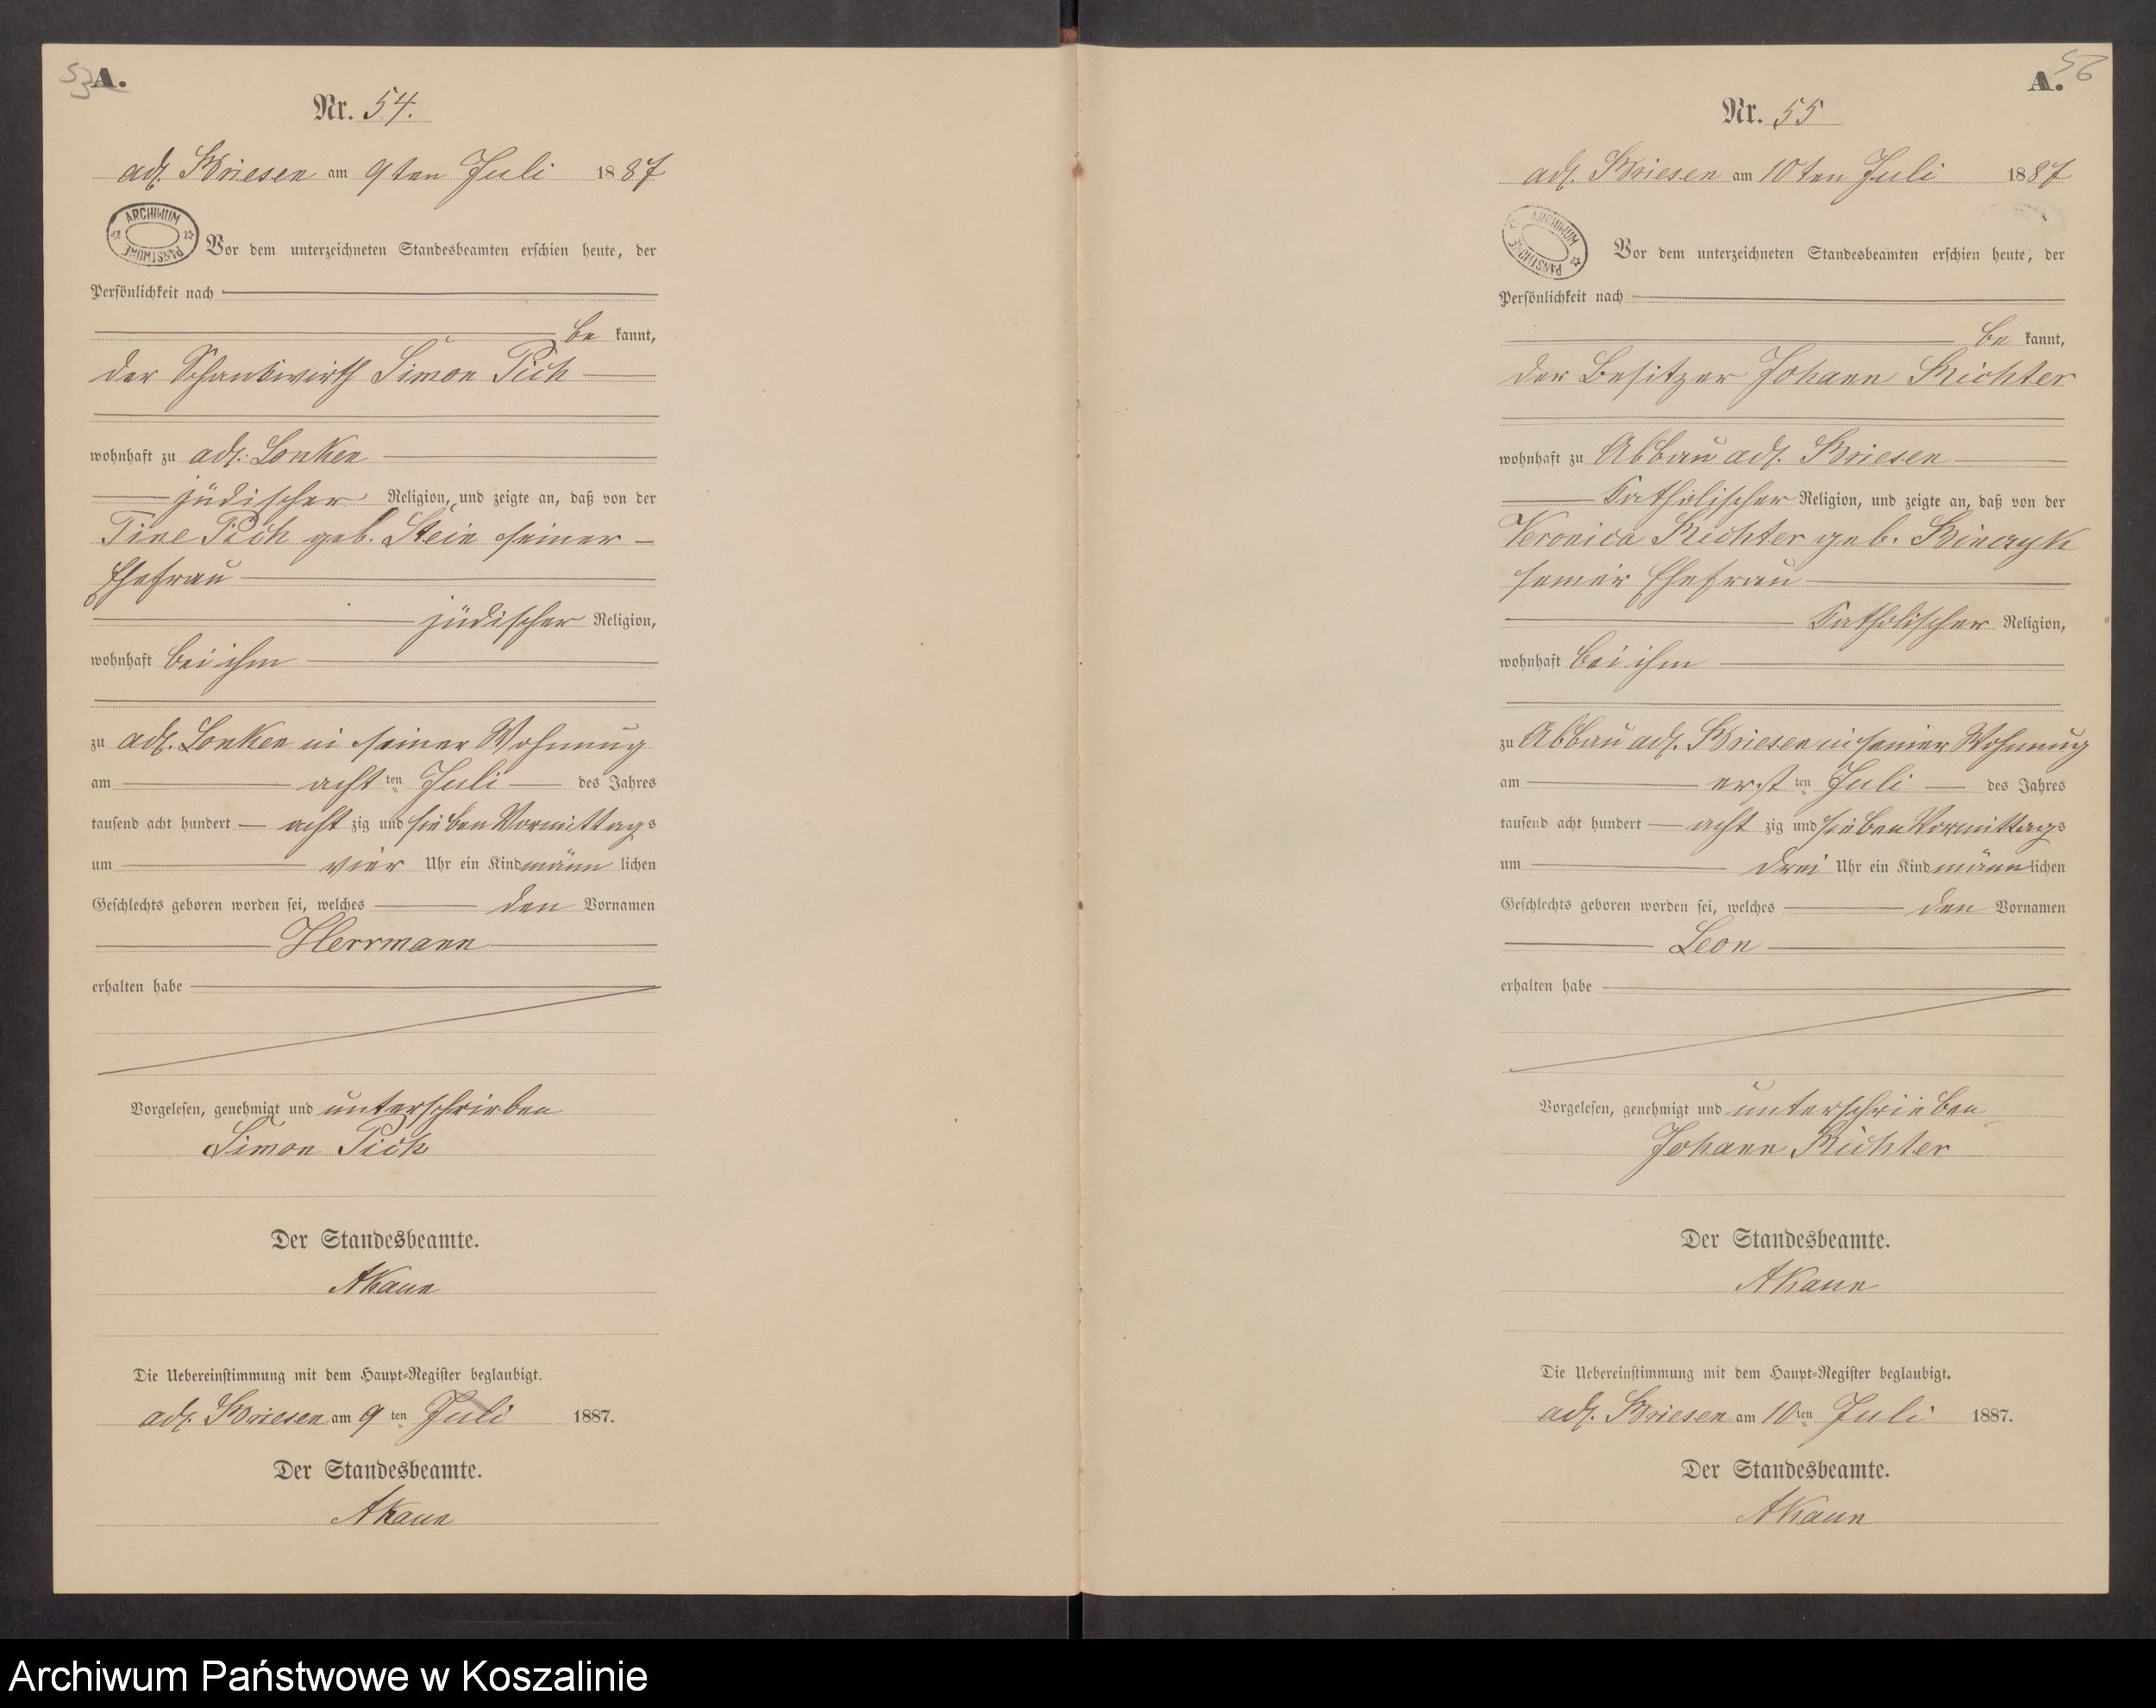 53
A.
Nr. 54.
adl. Briesen am 9ten Juli 1887
ARCHIWUM PAŃSTWOWE
Vor dem unterzeichneten Standesbeamten erschien heute, der
Persönlichkeit nach
be kannt,
der Schankwirth Simon Pick
wohnhaft zu adl. Lonken
jüdischer Religion, und zeigte an, daß von der
Tine Pick geb. Stein seiner
Ehefrau
jüdischer Religion,
wohnhaft bei ihm
zu adl. Lonken in seiner Wohnung
am acht ten Juli des Jahres
tausend acht hundert acht zig und sieben Vormittags
um vier Uhr ein Kind männ lichen
Geschlechts geboren worden sei, welches den Vornamen
Herrmann
erhalten habe
Vorgelesen, genehmigt und unterschrieben
Simon Pick
Der Standesbeamte.
Die Uebereinstimmung mit dem Haupt-Register beglaubigt.
adl. Briesen am 9 ten Juli 1887.
Der Standesbeamte.
A.
Nr. 55
adl. Briesen am 10ten Juli 1887
ARCHIWUM PAŃSTWOWE
Vor dem unterzeichneten Standesbeamten erschien heute, der
Persönlichkeit nach
be kannt,
der Besitzer Johann Richter
wohnhaft zu Abbau adl. Briesen
katholischer Religion, und zeigte an, daß von der
Veronica Richter geb.
seiner Ehefrau
katholischer Religion,
wohnhaft bei ihm
zu Abbau adl. Briesen in seiner Wohnung
am erst ten Juli des Jahres
tausend acht hundert acht zig und sieben Vormittags
um drei Uhr ein Kind männ lichen
Geschlechts geboren worden sei, welches den Vornamen
Leon
erhalten habe
Vorgelesen, genehmigt und unterschrieben
Johann Richter
Der Standesbeamte.
Die Uebereinstimmung mit dem Haupt-Register beglaubigt.
adl. Briesen am 10 ten Juli 1887.
Der Standesbeamte.
Archiwum Państwowe w Koszalinie